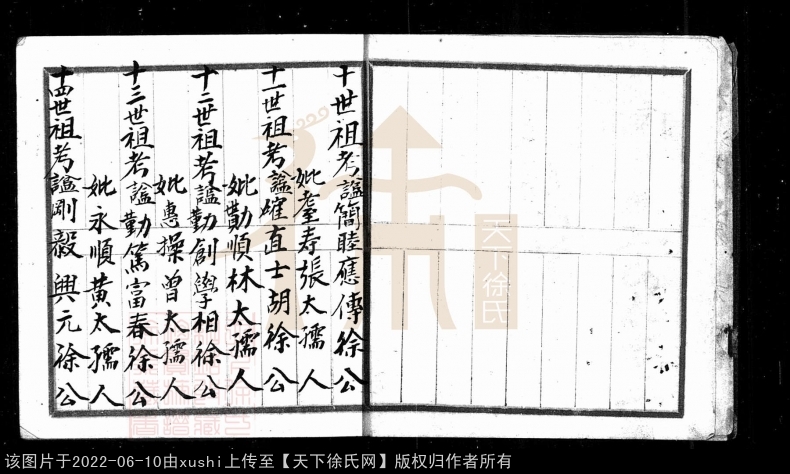 十世祖考諡簡睦應傳徐公
妣耋寿張太孺人
十一世祖考諡確直士胡徐公
妣勤順林太孺人
十二世祖考諡勤創學相徐公
妣惠操曾太孺人
十三世祖考諡勤篤富春徐公
妣永順黃太孺人
十四世祖考諡剛毅興元徐公
天下徐氏
该图片于2022-06-10由xushi上传至【天下徐氏网】版权归作者所有